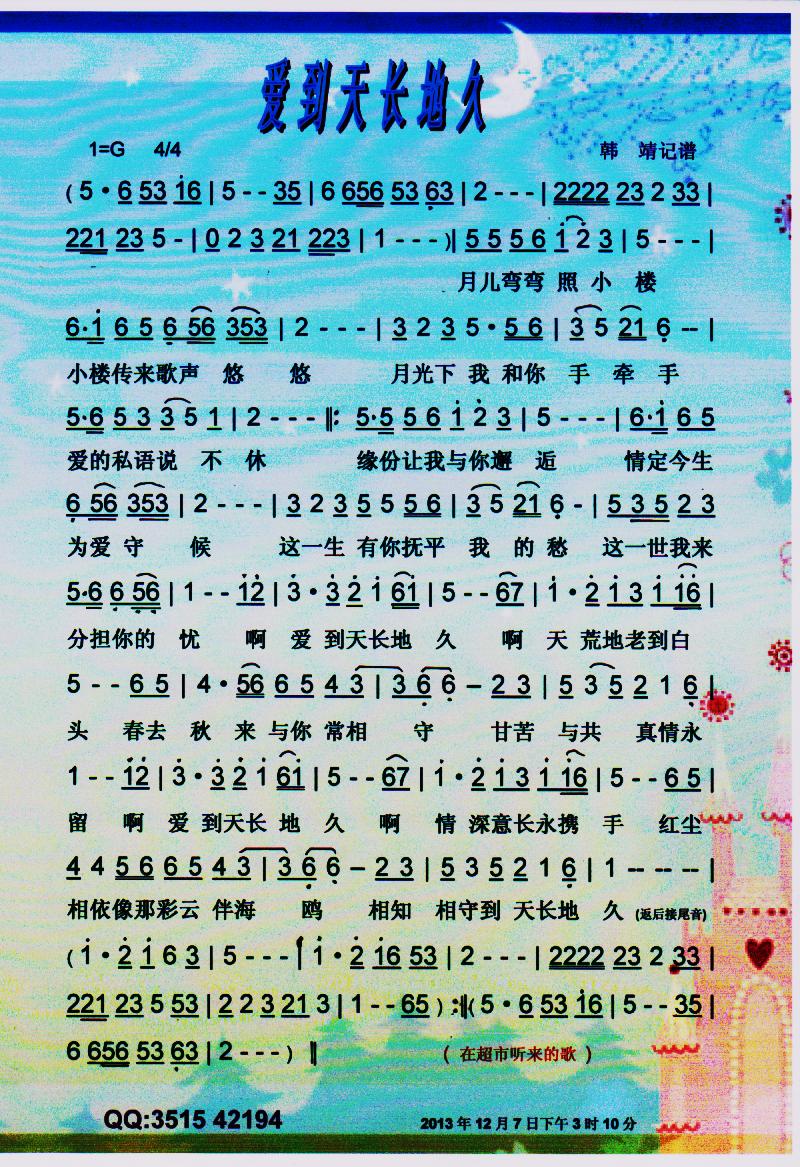 爱到天长地久
1=G 4/4 韩 靖记谱
( 5 · 6 53 16 | 5 - - 35 | 6 656 53 63 | 2 - - - | 2222 23 2 33 |
221 23 5 - | 0 2 3 21 223 | 1 - - - ) || 5 5 5 6 1 2 3 | 5 - - - |
月儿弯弯 照 小 楼
6·1 6 5 6 56 353 | 2 - - - | 3 2 3 5 · 5 6 | 3 5 21 6 -- |
小楼传来歌声 悠 悠 月光下 我 和你 手 牵 手
5·6 5 3 3 5 1 | 2 - - - ||: 5·5 5 6 1 2 3 | 5 - - - | 6·1 6 5
爱的私语说 不 休 缘份让我与你邂 逅 情定今生
6 56 353 | 2 - - - | 3 2 3 5 5 5 6 | 3 5 21 6 - | 5 3 5 2 3
为爱 守 候 这一生 有你抚平 我 的 愁 这一世我来
5·6 6 56 | 1 - - 12 | 3 · 3 2 1 61 | 5 - - 67 | 1 · 2 1 3 1 16 |
分担你的 忧 啊 爱 到天长地 久 啊 天 荒地老到白
5 - - 6 5 | 4 · 56 6 5 4 3 | 3 6 6 - 2 3 | 5 3 5 2 1 6 |
头 春去 秋 来 与你 常相 守 甘苦 与共 真情永
1 - - 12 | 3 · 3 2 1 61 | 5 - - 67 | 1 · 2 1 3 1 16 | 5 - - 6 5 |
留 啊 爱 到天长 地 久 啊 情 深意长永携 手 红尘
4 4 5 6 6 5 4 3 | 3 6 6 - 2 3 | 5 3 5 2 1 6 | 1 -- -- -- |
相依像那彩云 伴海 鸥 相知 相守到 天长地 久 (返后接尾音)
( 1 · 2 1 6 3 | 5 - - - | 1 · 2 16 53 | 2 - - - | 2222 23 2 33 |
221 23 5 53 | 2 2 3 21 3 | 1 - - 65 ) :||( 5 · 6 53 16 | 5 - - 35 |
6 656 53 63 | 2 - - - ) || ( 在超市听来的歌 )
QQ:3515 42194 2013 年 12 月 7 日下午 3 时 10 分